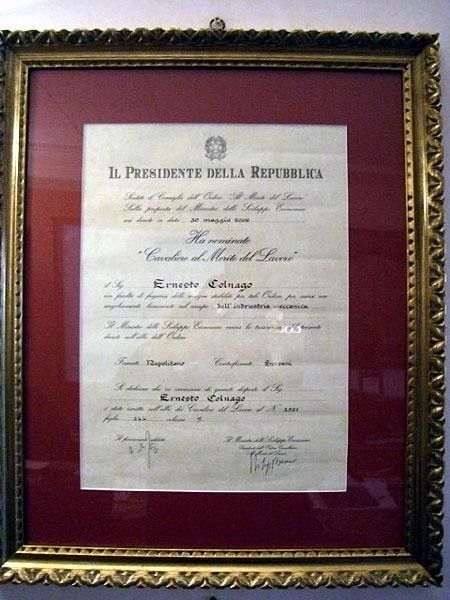 IL PRESIDENTE DELLA REPUBBLICA
Sentito il Consiglio dell'Ordine "Al Merito del Lavoro"
Sulla proposta del Ministro dello Sviluppo Economico
con decreto in data 30 maggio 2006
Ha nominato
"Cavaliere al Merito del Lavoro"
il Sig. Ernesto Colnago
con facoltà di fregiarsi delle insegne stabilite per tale Ordine, per essersi
singolarmente benemerito nel campo dell'industria meccanica
Il Ministro dello Sviluppo Economico
decreto nell'albo dell'Ordine
Firmato Napolitano Controfirmato Bersani
Si dichiara che in esecuzione di quanto disposto il Sig.
Ernesto Colnago
è stato iscritto nell'albo dei Cavalieri del Lavoro al N°
foglio volume
Il Ministro dello Sviluppo Economico